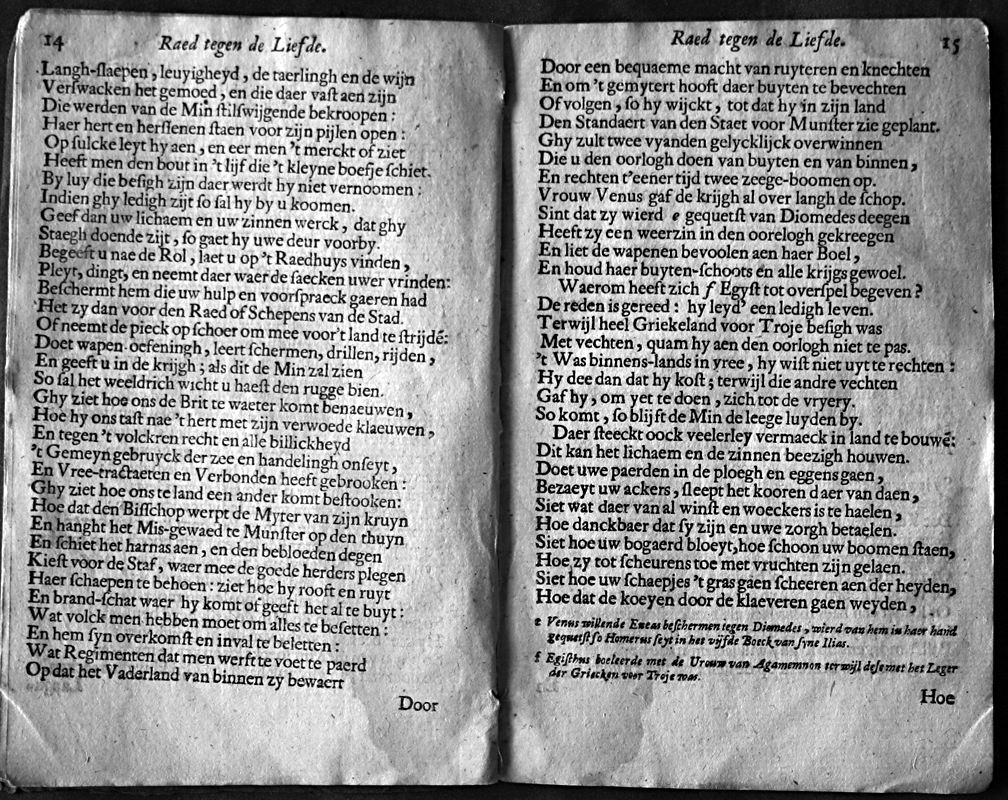 14
Raed tegen de Liefde.
Langh-ſlaepen, leuyigheyd, de taerlingh en de wijn
Verſwacken het gemoed, en die daer vaſt aen zijn
Die werden van de Min ſtilſwijgende bekroopen:
Haer hert en herſſenen ſtaen voor zijn pijlen open:
Op ſulcke leyt hy aen, en eer men 't merckt of ziet
Heeft men den bout in 't lijf die 't kleyne boefje ſchiet.
By luy die beſigh zijn daer werdt hy niet vernoomen:
Indien ghy ledigh zijt ſo ſal hy by u koomen.
Geef dan uw lichaem en uw zinnen werck, dat ghy
Staegh doende zijt, ſo gaet hy uwe deur voorby.
Begeeft u nae de Rol, laet u op 't Raedhuys vinden,
Pleyt, dingt, en neemt daer waer de ſaecken uwer vrinden:
Beſchermt hem die uw hulp en voorſpraeck gaeren had
Het zy dan voor den Raed of Schepens van de Stad.
Of neemt de pieck op ſchoer om mee voor't land te ſtrijdē:
Doet wapen-oefeningh, leert ſchermen, drillen, rijden,
En geeft u in de krijgh; als dit de Min zal zien
So ſal het weeldrich wicht u haeſt den rugge bien.
Ghy ziet hoe ons de Brit te waeter komt benaeuwen,
Hoe hy ons taſt nae 't hert met zijn verwoede klaeuwen,
En tegen 't volckren recht en alle billickheyd
't Gemeyn gebruyck der zee en handelingh onſeyt,
En Vree-tractaeten en Verbonden heeft gebrooken:
Ghy ziet hoe ons te land een ander komt beſtooken:
Hoe dat den Biſſchop werpt de Myter van zijn kruyn
En hanght het Mis-gewaed te Munſter op den thuyn
En ſchiet het harnas aen, en den bebloeden degen
Kieſt voor de Staf, waer mee de goede herders plegen
Haer ſchaepen te behoen: ziet hoe hy rooft en ruyt
En brand-ſchat waer hy komt of geeft het al te buyt:
Wat volck men hebben moet om alles te beſetten:
En hem ſyn overkomſt en inval te beletten:
Wat Regimenten dat men werft te voet te paerd
Op dat het Vaderland van binnen zy bewaert
Door
Raed tegen de Liefde.
15
Door een bequaeme macht van ruyteren en knechten
En om 't gemytert hooft daer buyten te bevechten
Of volgen, ſo hy wijckt, tot dat hy in zijn land
Den Standaert van den Staet voor Munſter zie geplant.
Ghy zult twee vyanden gelycklijck overwinnen
Die u den oorlogh doen van buyten en van binnen,
En rechten t'eener tijd twee zeege-boomen op.
Vrouw Venus gaf de krijgh al over langh de ſchop.
Sint dat zy wierd e gequetſt van Diomedes deegen
Heeft zy een weerzin in den oorelogh gekreegen
En liet de wapenen bevoolen aen haer Boel,
En houd haer buyten-ſchoots en alle krijgs gewoel.
Waerom heeft zich f Egyſt tot overſpel begeven?
De reden is gereed: hy leyd' een ledigh leven.
Terwijl heel Griekeland voor Troje beſigh was
Met vechten, quam hy aen den oorlogh niet te pas.
't Was binnens-lands in vree, hy wiſt niet uyt te rechten:
Hy dee dan dat hy koſt; terwijl die andre vechten
Gaf hy, om yet te doen, zich tot de vryery.
So komt, ſo blijft de Min de leege luyden by.
Daer ſteeckt oock veelerley vermaeck in land te bouwē:
Dit kan het lichaem en de zinnen beezigh houwen.
Doet uwe paerden in de ploegh en eggens gaen,
Bezaeyt uw ackers, ſleept het kooren daer van daen,
Siet wat daer van al winſt en woeckers is te haelen,
Hoe danckbaer dat ſy zijn en uwe zorgh betaelen.
Siet hoe uw bogaerd bloeyt, hoe ſchoon uw boomen ſtaen,
Hoe zy tot ſcheurens toe met vruchten zijn gelaen.
Siet hoe uw ſchaepjes 't gras gaen ſcheeren aen der heyden,
Hoe dat de koeyen door de klaeveren gaen weyden,
e Venus willende Eneas beſchermen tegen Diomedes, wierd van hem in haer hand
gequetſt ſo Homerus ſeyt in het vijfde Boeck van ſyne Ilias.
f Egiſthus boeleerde met de Vrouw van Agamemnon terwijl deſe met het Leger
der Griecken voor Troje was.
Hoe